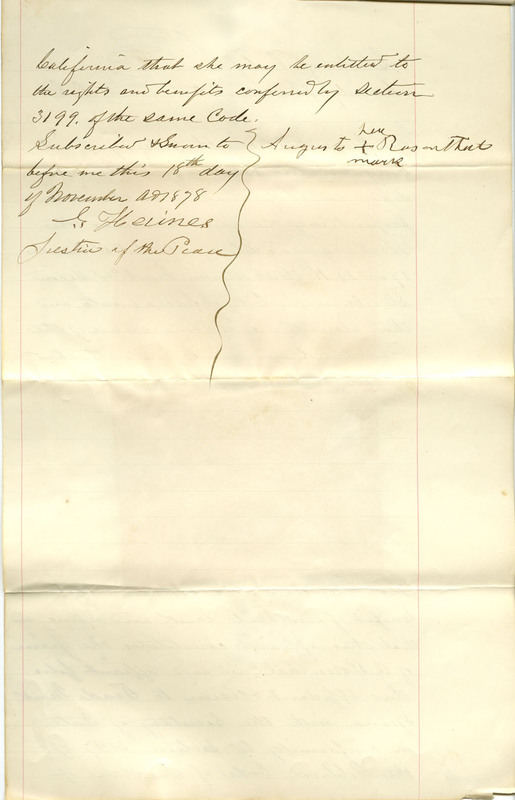 California that she may be entitled to
the rights and benefits conferred by Section
3199. of the same Code.
Subscribed & Sworn to
before me this 18th day
of November AD 1878
G Haines
Justice of the Peace
her
Augusta + Rosenthal
mark